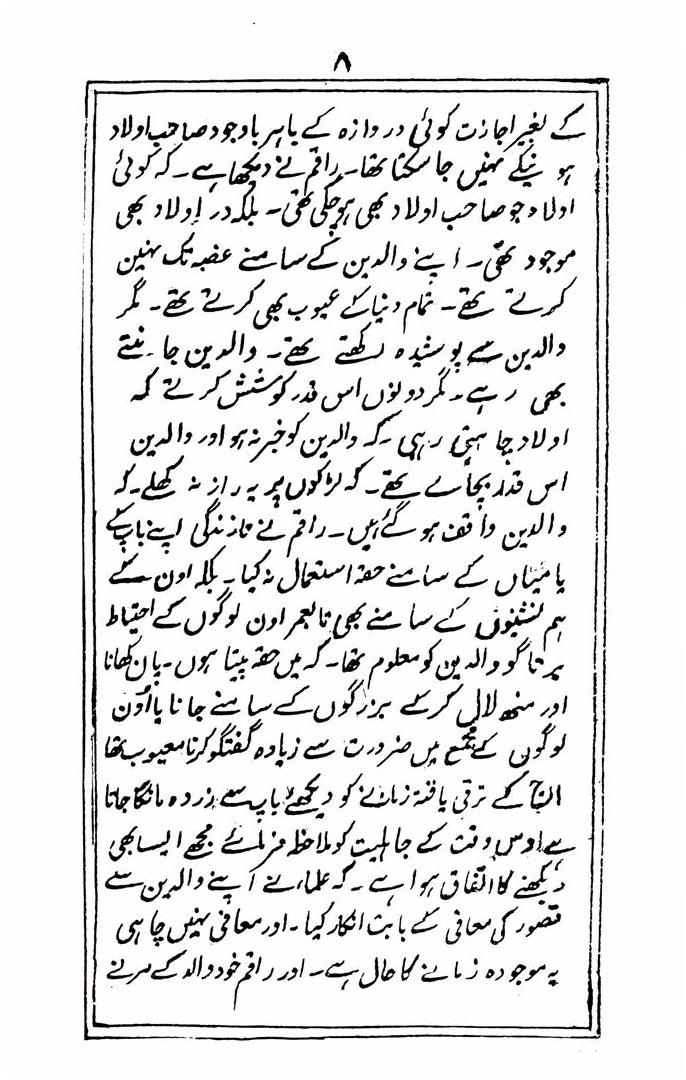 ۸
کے بغیر اجازت کوئی دروازہ کے باہر باوجود صاحب اولاد
ہو نیکے نہیں جا سکتا تھا۔ راقم نے دیکھا ہے۔ کہ کوئی
اولاد جو صاحب اولاد بھی ہو چکی تھی۔ بلکہ در اولاد بھی
موجود تھی۔ اپنے والدین کے سامنے غصہ تک نہین
کرتے تھے۔ تمام دنیا کے عیوب بھی کرتے تھے۔ مگر
والدین سے پوشیدہ رکھتے تھے۔ والدین جانتے
بھی رہے۔ مگر دونوں اس قدر کوشش کرتے کہ
اولاد چاہتی رہی۔ کہ والدین کو خبر نہ ہو اور والدین
اس قدر بچاتے تھے۔ کہ لڑکوں پر یہ راز نہ کھلے۔ کہ
والدین واقف ہو گئے ہیں۔ راقم نے تا زندگی اپنے باپ کے
یا میاں کے سامنے حقہ استعمال نہ کیا۔ بلکہ اون کے
ہم نشینوں کے سامنے بھی تا بعمر اون لوگوں کے احتیاط
برتا گو والدین کو معلوم تھا۔ کہ میں حقہ پیتا ہوں۔ پان کھانا
اور منھ لال کرکے بزرگوں کے سامنے جانا یا اون
لوگوں کے مجمع میں ضرورت سے زیادہ گفتگو کرنا معیوب تھا
آج کے ترقی یافتہ زمانے کو دیکھئے باپ سے زردہ مانگا جاتا
ہے اوس وقت کے جاہلیت کو ملاحظہ فرمائے مجھے ایسا بھی
دیکھنے کا اتفاق ہوا ہے۔ کہ علماء نے اپنے والدین سے
قصور کی معافی کے بابت انکار کیا۔ اور معافی نہیں چاہی
یہ موجودہ زمانے کا حال ہے۔ اور راقم خود والد کے مرنے